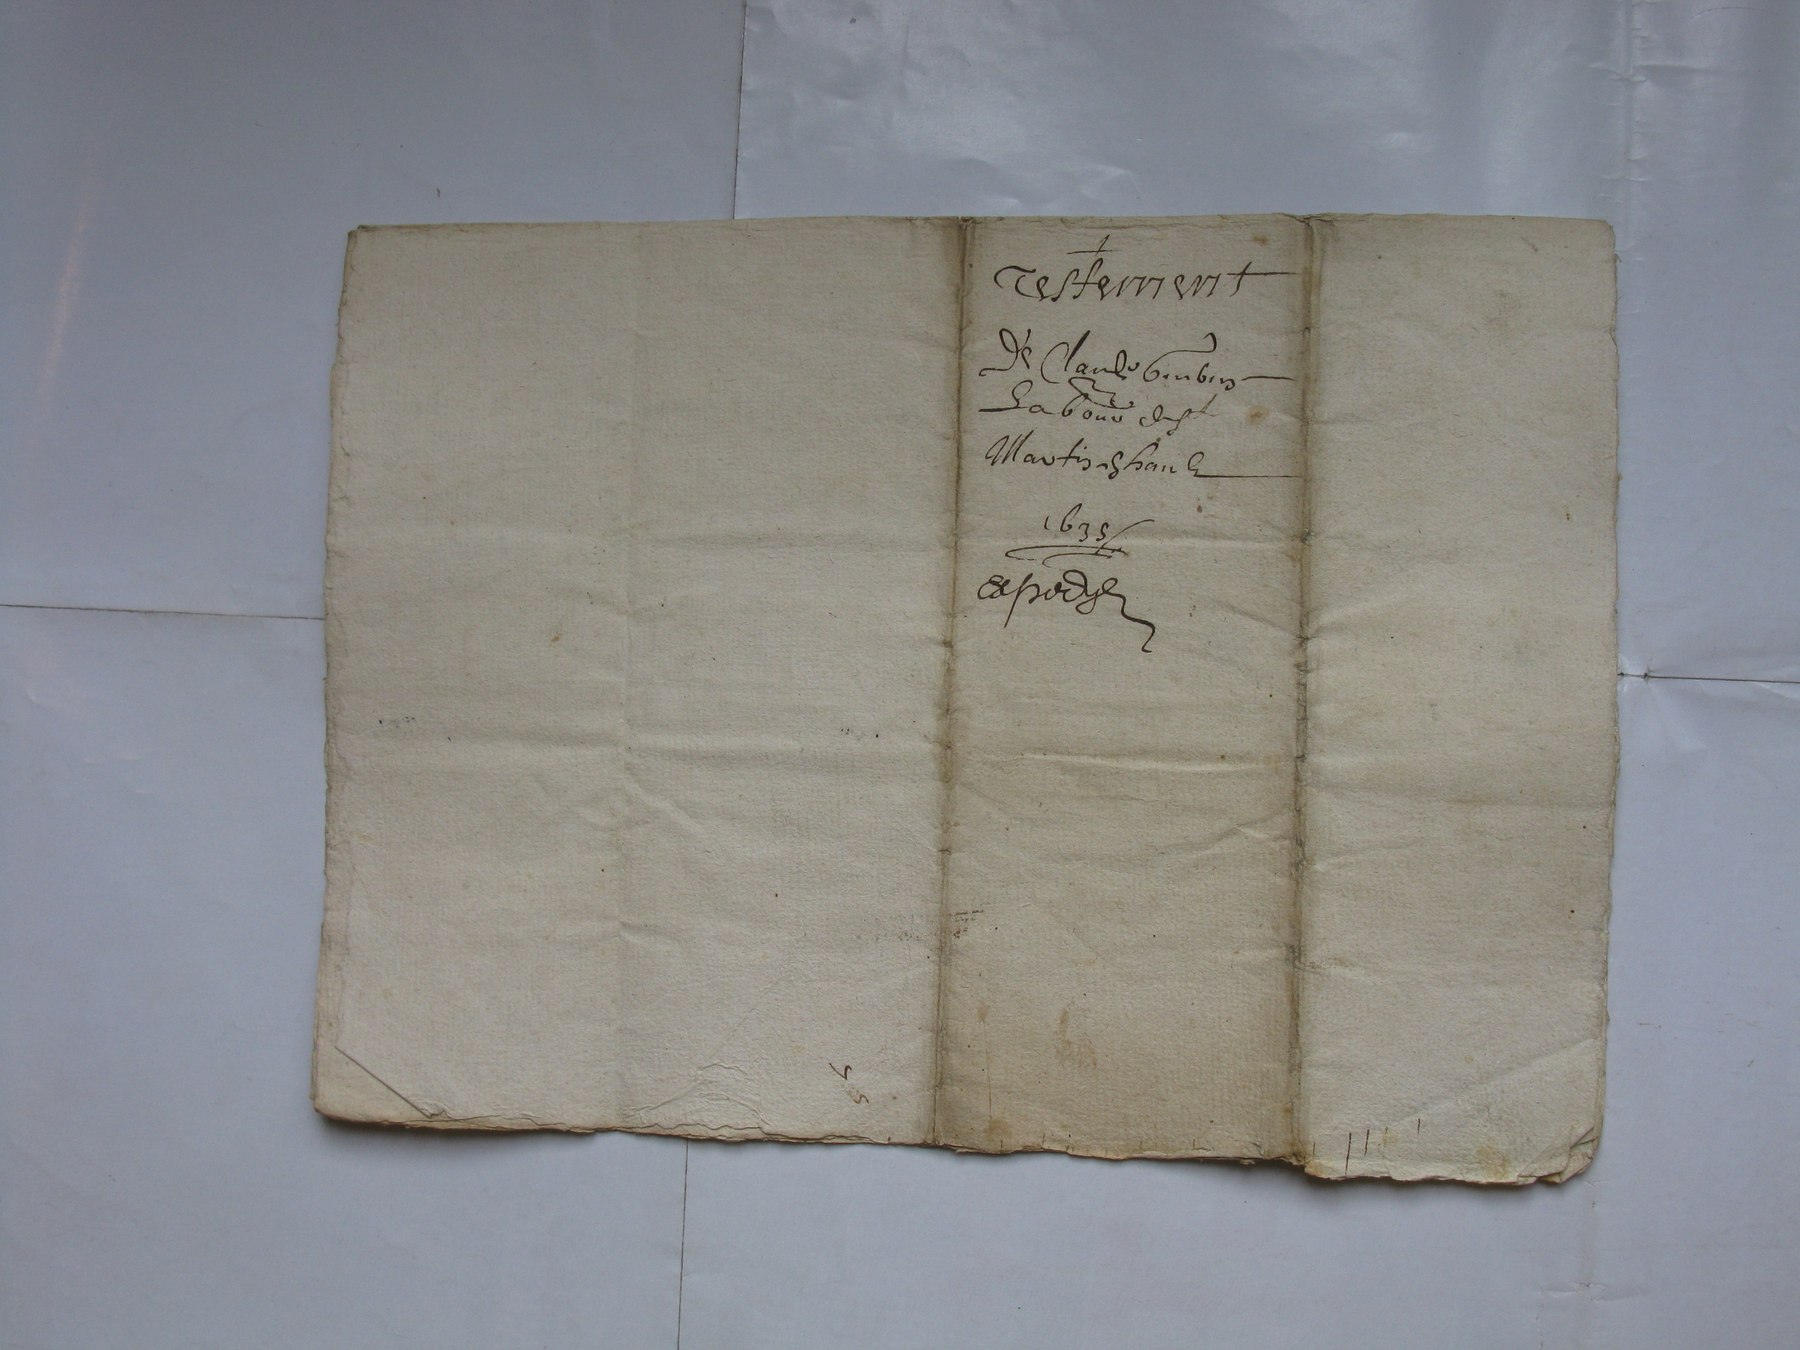 Testement
De Claude
Labour de St
Martin
1635
expedye